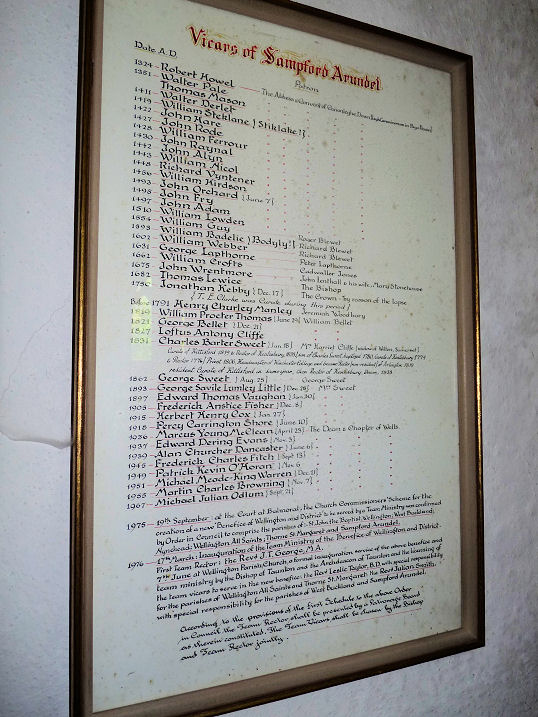 Vicars of Sampford Arundel
Date A.D. Patron
1324 Robert Howel
1351 Walter Pale
Thomas Mason
1411 Walter Derlet
1419 William Steklane {Stiklake?}
1422 John Hare
1427 John Rode
1428 William Ferrour
1430 John Raynal
1442 John Alyn
1443 William Nicol
1448 Richard Vyntener
1486 William Hirdson
1493 John Orchard {June 7}
1495 John Fry
1497 John Adam
1510 William Lowden
1554 William Guy Roger Blewet
William Badelie {Bodyly?} Richard Blewet
1602 William Webber Richard Blewet
1631 George Lapthorne Peter Lapthorne
1662 William Crofts Cadwaller Jones
1675 John Wrentmore John Lenthall & his wife, Mary Stonehouse
1682 Thomas Lewice The Bishop
Jonathan Kebby {Dec. 17} The Crown - by reason of the lapse
{T. E. Clarke was Curate during this period}
Before 1791 Henry Churley Manley Jeremiah Woodbury
1819 William Procter Thomas {June 29} William Bellet
1821 George Bellet {Dec. 21}
1827 Loftus Antony Cliffe
1831 Charles Barter Sweet {Jan 18} Mrs Harriet Cliffe
1862 George Sweet {Aug 25} George Sweet
1893 George Savile Lumley Little {Dec 28} Mrs Sweet
1897 Edward Thomas Vaughan {Jan 30}
1905 Frederick Anstice Fisher {Dec. 8}
1915 Herbert Henry Cox {Jan. 27}
1918 Percy Carrington Shore {June 10}
1926 Marcus Young McClean {April 23} The Dean & Chapter of Wells
1937 Edward Dering Evans {Nov. 3}
1939 Alan Churcher Dancaster {June 6}
1945 Frederic Charles Fitch {Sept 13}
1949 Patrick Kevin O'Horan {Nov 6}
1951 Michael Meade-King Warren {Dec. 21}
1955 Martin Charles Browning {Nov 7}
1967 Michael Julian Odlum {Sept. 21}
1975 19th September: at the Court at Balmoral, the Church Commissioners' Scheme for the
creation of a new 'Benefice of Wellington and District' to be served by a Team Ministry was confirmed
by Order in Council to comprise the parishes of: St John the Baptist, Wellington, West Buckland,
Nynehead; Wellington, All Saints; Thorne St. Margaret and Sampford Arundel.
1976 17th March: Inauguration of the Team Ministry of the Benefice of Wellington and District.
First Team Rector: the Revd J. T. George, M.A.
7th June at Wellington Parish Church, a formal inauguration service of the above benefice and
team ministry by the Bishop of Taunton and the Archdeacon of Taunton and the licensing of
the team vicars to serve in the new benefice: the Revd Leslie Taylor, B.D. with special responsibility
for the parishes of Wellington All Saints and Thorne St. Margaret: the Revd Julian Smith,
with special responsibility for the parishes of West Buckland and Sampford Arundel.
According to the provisions of the First Schedule to the above Order
in Council, the Team Rector shall be presented by a Patronage Board
as therein constituted. The Team Vicars shall be chosen by the Bishop
and Team Rector jointly.